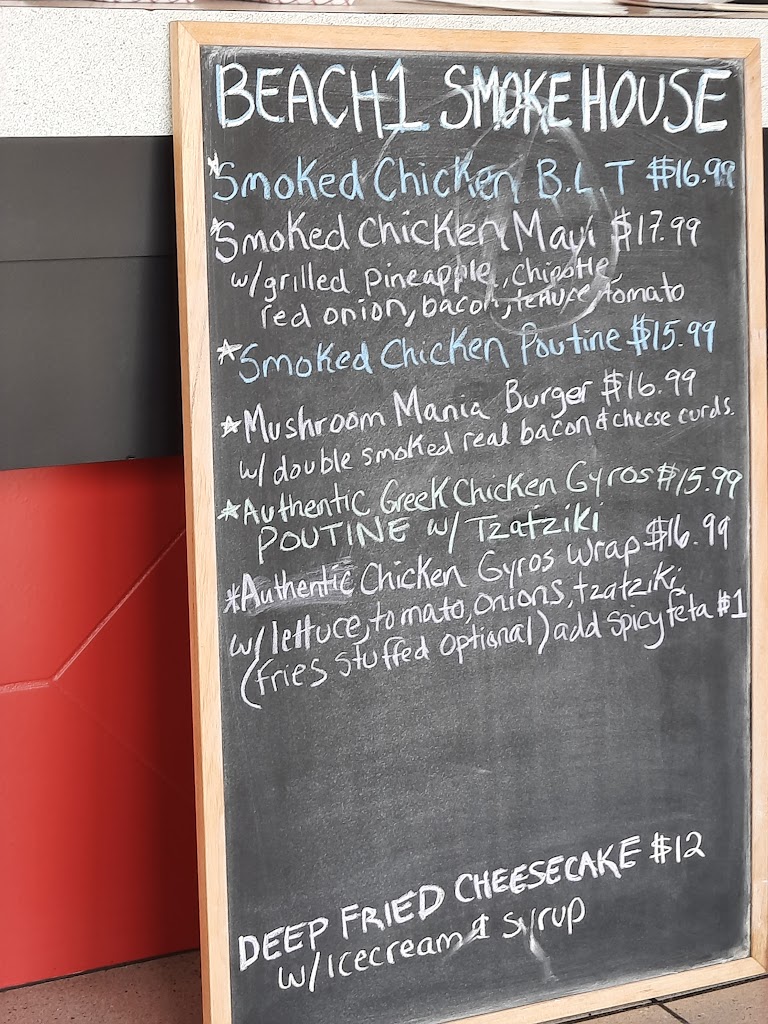 BEACH1 SMOKEHOUSE
*Smoked Chicken B.L.T $16.99
*Smoked Chicken Maui $17.99
w/grilled pineapple, chipotle,
red onion, bacon, lettuce, tomato
*Smoked Chicken Poutine $15.99
*Mushroom Mania Burger $16.99
w/ double smoked real bacon & cheese curds.
*Authentic Greek Chicken Gyros $15.99
POUTINE w/ Tzatziki
*Authentic Chicken Gyros Wrap $16.99
w/lettuce, tomato, onions, tzatziki
(fries stuffed optional) add spicy feta $1
DEEP FRIED CHEESECAKE $12
w/icecream & syrup